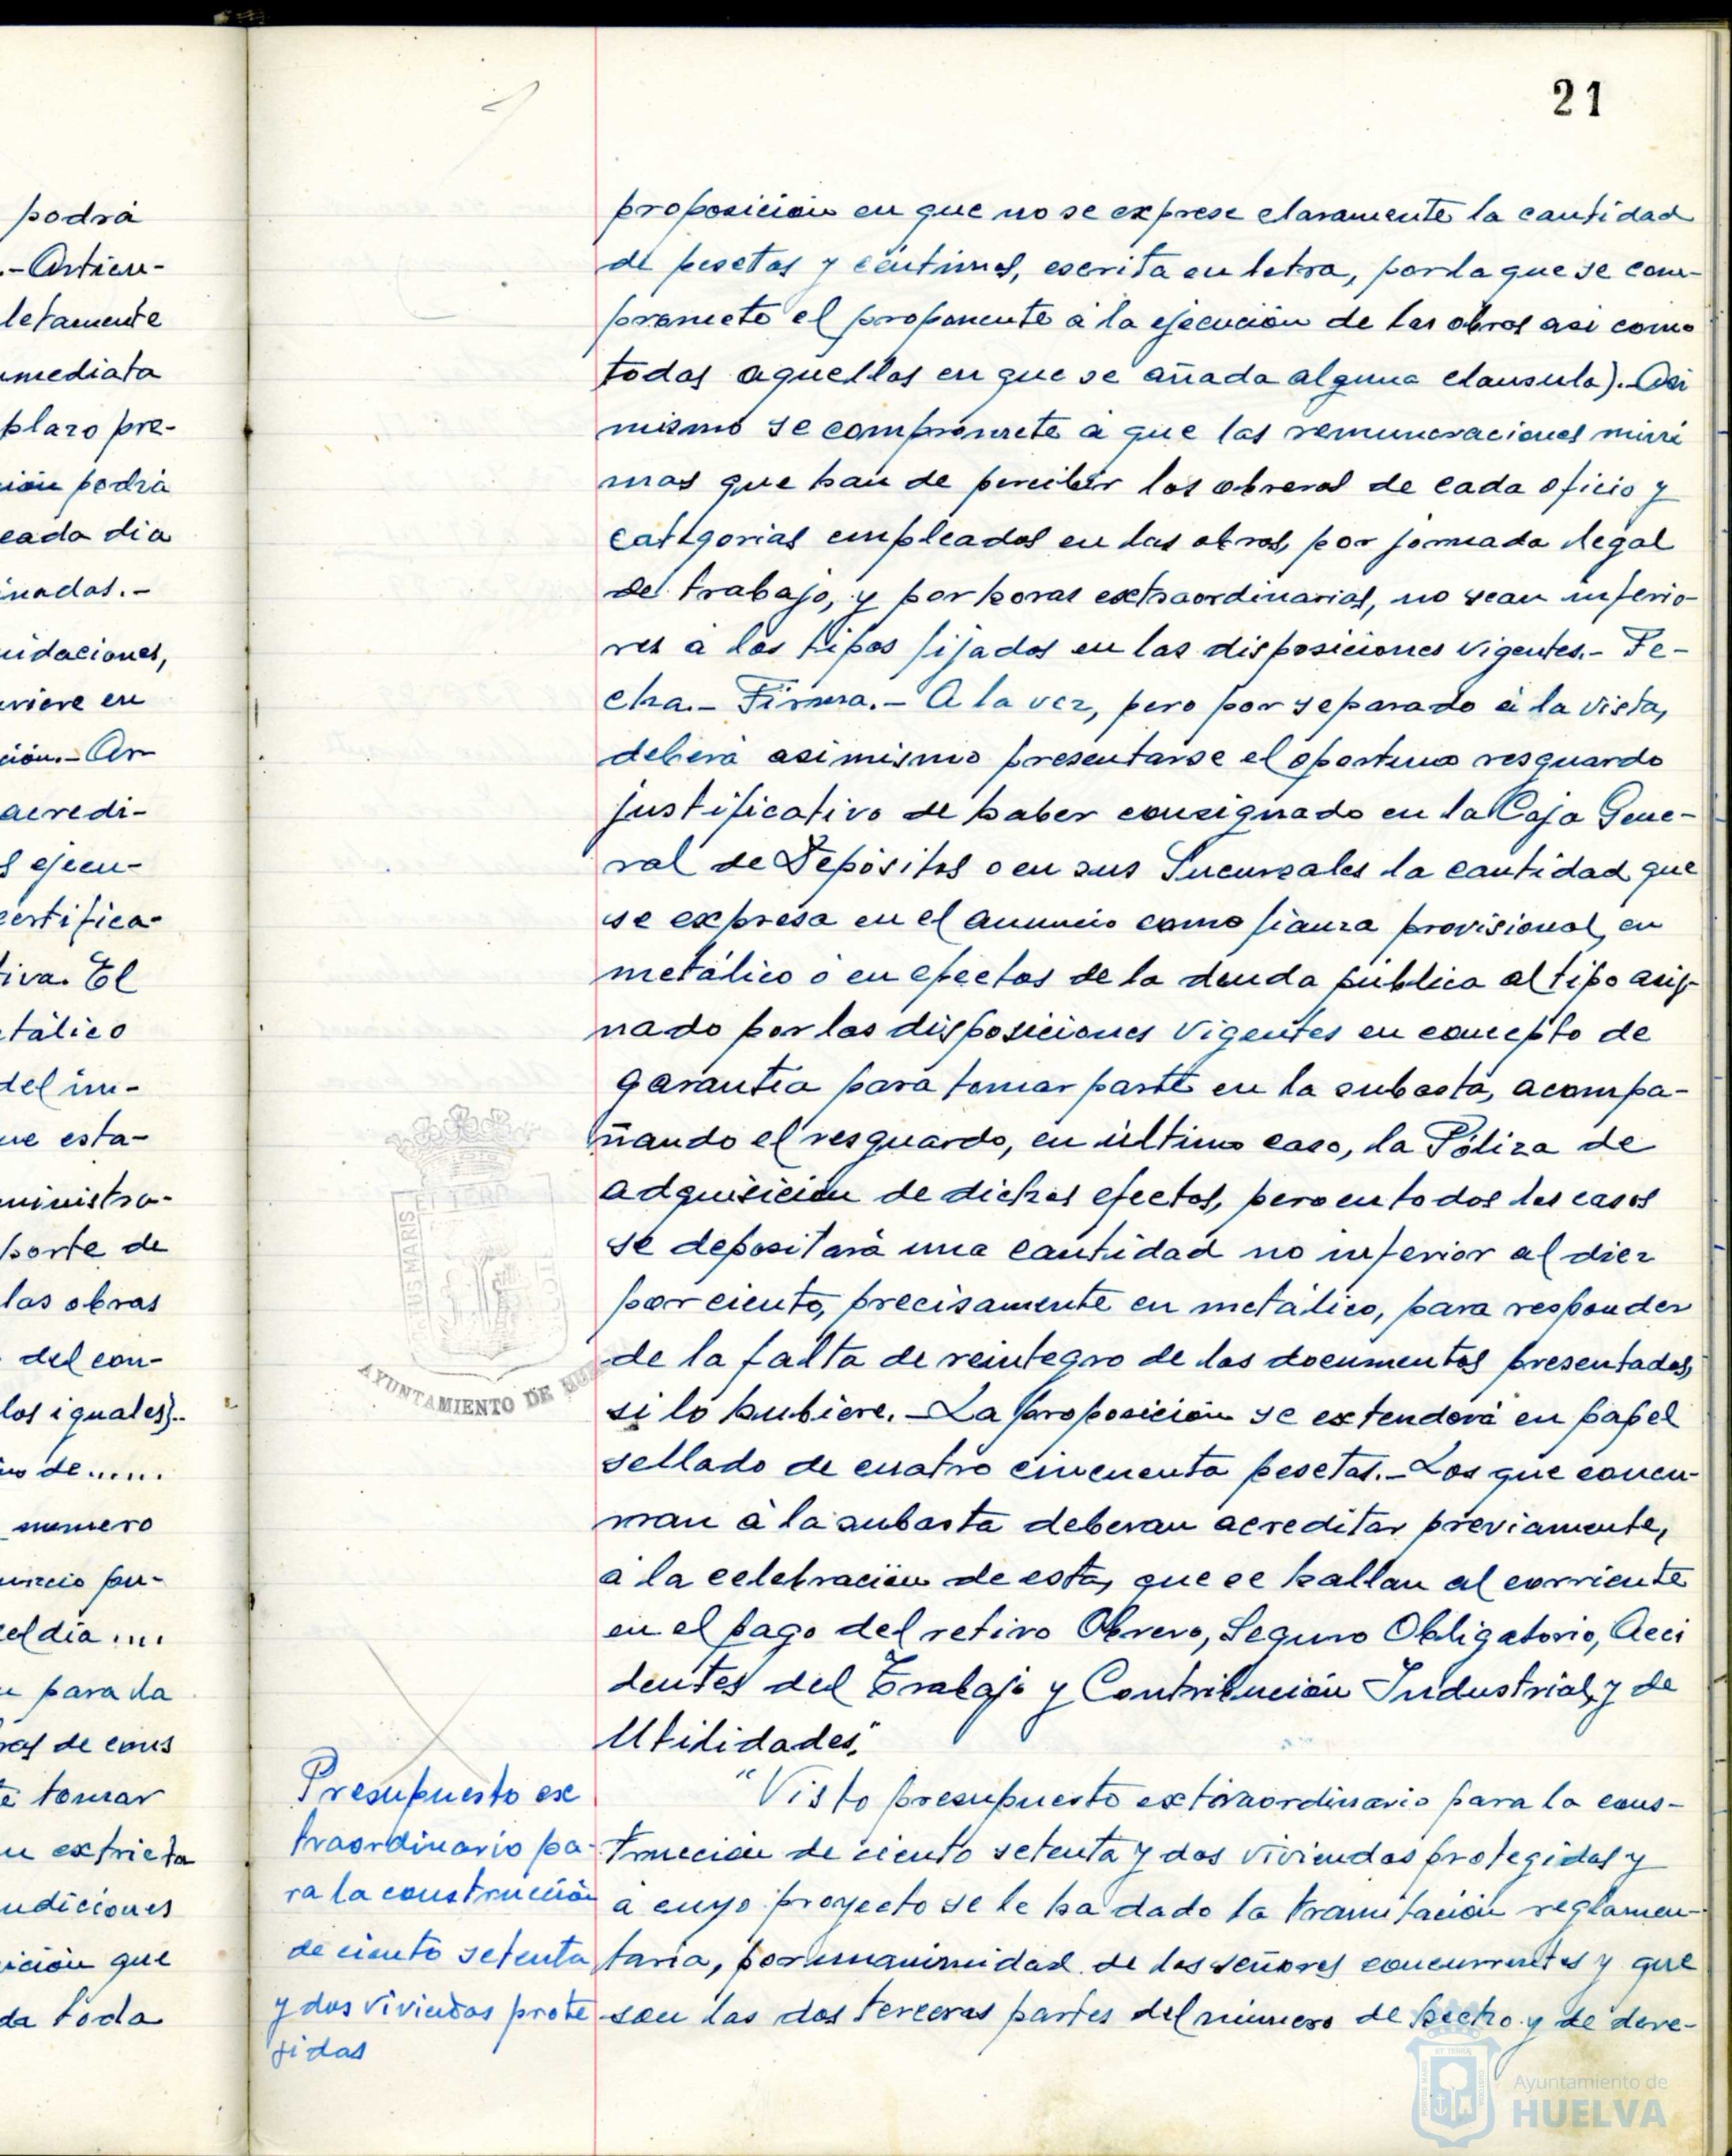 podrá
.- Articu-
letamente
mediata
plazo pre-
ción podrá
cada dia
inadas.-
uidaciones,
uviere en
ción.- Ar-
acredi-
s ejecu-
certifica-
tiva. El
tálico
del im-
ue esta-
ministra-
porte de
las obras
del con-
los iguales)..
de.....
numero
uncio pu-
el día ....
para la
ras de cons
tomar
extricta
ndiciones
ición que
da toda
21
proposición en que no se exprese claramente la cantidad
de pesetas y céntimos, escrita en letra, por la que se com-
promete el proponente á la ejecución de las obras asi como
todas aquellas en que se añada alguna clausula).- Asi
mismo se compromete á que las remuneraciones míni
mas que han de percibir los obreros de cada oficio y
categorias empleados en las obras, por jornada legal
de trabajo, y por horas extraordinarias, no sean inferio-
res á los tipos fijados en las disposiciones vigentes.- Fe-
cha.- Firma.- A la vez, pero por separado á la vista,
deberá asimismo presentarse el oportuno resguardo
justificativo de haber consignado en la Caja Gene-
ral de Depósitos o en sus Sucursales la cantidad que
se expresa en el anuncio como fianza provisional, en
metálico ó en efectos de la deuda pública al tipo asig-
nado por las disposiciones vigentes en concepto de
garantía para tomar parte en la subasta, acompa-
ñando el resguardo, en último caso, la Póliza de
adquisición de dichos efectos, pero en todos los casos
se depositará una cantidad no inferior al diez
por ciento, precisamente en metálico, para responder
de la falta de reintegro de los documentos presentados,
si lo hubiere.- La proposición se extenderá en papel
sellado de cuatro cincuenta pesetas.- Los que concu-
rran á la subasta deberan acreditar previamente,
á la celebración de esta, que se hallan al corriente
en el pago del retiro Obrero, Seguro Obligatorio, Acci
dentes del Trabajo y Contribución Industrial, y de
Utilidades."
"Visto presupuesto extraordinario para la cons-
trucción de ciento setenta y dos viviendas protegidas y
á cuyo proyecto se le ha dado la tramitación reglamen-
taria, por unanimidad de los señores concurrentes y que
son las dos terceras partes del número de hecho y de dere-
Presupuesto ex
traordinario pa-
ra la construcción
de ciento setenta
y dos viviendas prote
gidas
ET TERRA
PORTUS MARIS
CUSTODIA
AYUNTAMIENTO DE HUELVA
Ayuntamiento de
HUELVA